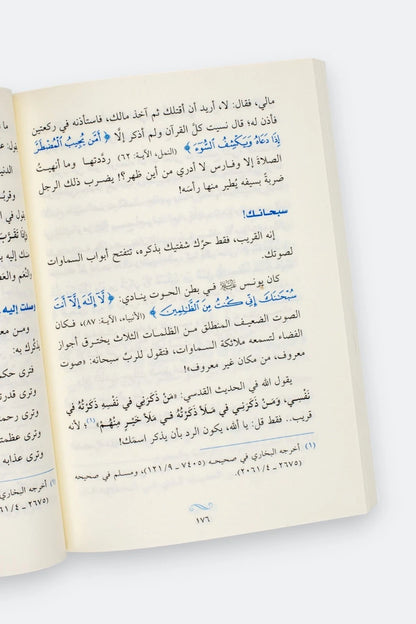 مالي، فقال: لا، أريد أن أقتلك ثم آخذ مالك، فاستأذنه في ركعتين
فأذن له؛ قال نسيت كلّ القرآن ولم أذكر إلّا ﴿ أَمَّن يُجِيبُ ٱلْمُضْطَرَّ
إِذَا دَعَاهُ وَيَكْشِفُ ٱلسُّوٓءَ ﴾ (النمل، الآية: ٦٢) ردّدتها وما أنهيتُ
الصلاة إلا وفارس لا أدري من أين ظهر؟! يضرب ذلك الرجل
ضربةً بسيفه يُطير منها رأسه!
سبحانك!
إنه القريب، فقط حرّك شفتيك بذكره، تتفتح أبواب السماوات
لصوتك.
كان يونس ﷺ في بطن الحوت ينادي: ﴿ لَّآ إِلَٰهَ إِلَّآ أَنتَ
سُبْحَٰنَكَ إِنِّي كُنتُ مِنَ ٱلظَّٰلِمِينَ ﴾ (الأنبياء، الآية: ٨٧)، فكان
الصوت الضعيف المنطلق من الظلمات الثلاث يخترق أجواز
الفضاء لتسمعه ملائكة السماوات، فتقول للربّ سبحانه: «صوت
معروف، من مكان غير معروف»!
يقول الله في الحديث القدسي: «مَنْ ذَكَرَنِي فِي نَفْسِهِ ذَكَرْتُهُ فِي
نَفْسِي، وَمَنْ ذَكَرَنِي فِي مَلَأٍ ذَكَرْتُهُ فِي مَلَأٍ خَيْرٍ مِنْهُمْ»(١)؛ لأنه
قريب.. فقط قل: يا ألله، يكون الرد بأن يذكر اسمَك!
(١) أخرجه البخاري في صحيحه (٧٤٠٥ - ١٢١/٩)، ومسلم في صحيحه
(٢٦٧٥ - ٢٠٦١/٤).
١٧٦
رسلت إليه
ومن معرفة
بذكرك به:
فترى حكمته
وترى قدرته
وترى رحمته
وترى عظمته
وترى عذابه
(١) أخرجه البخاري
(٢٦٧٥ - ٢٠٦١/٤